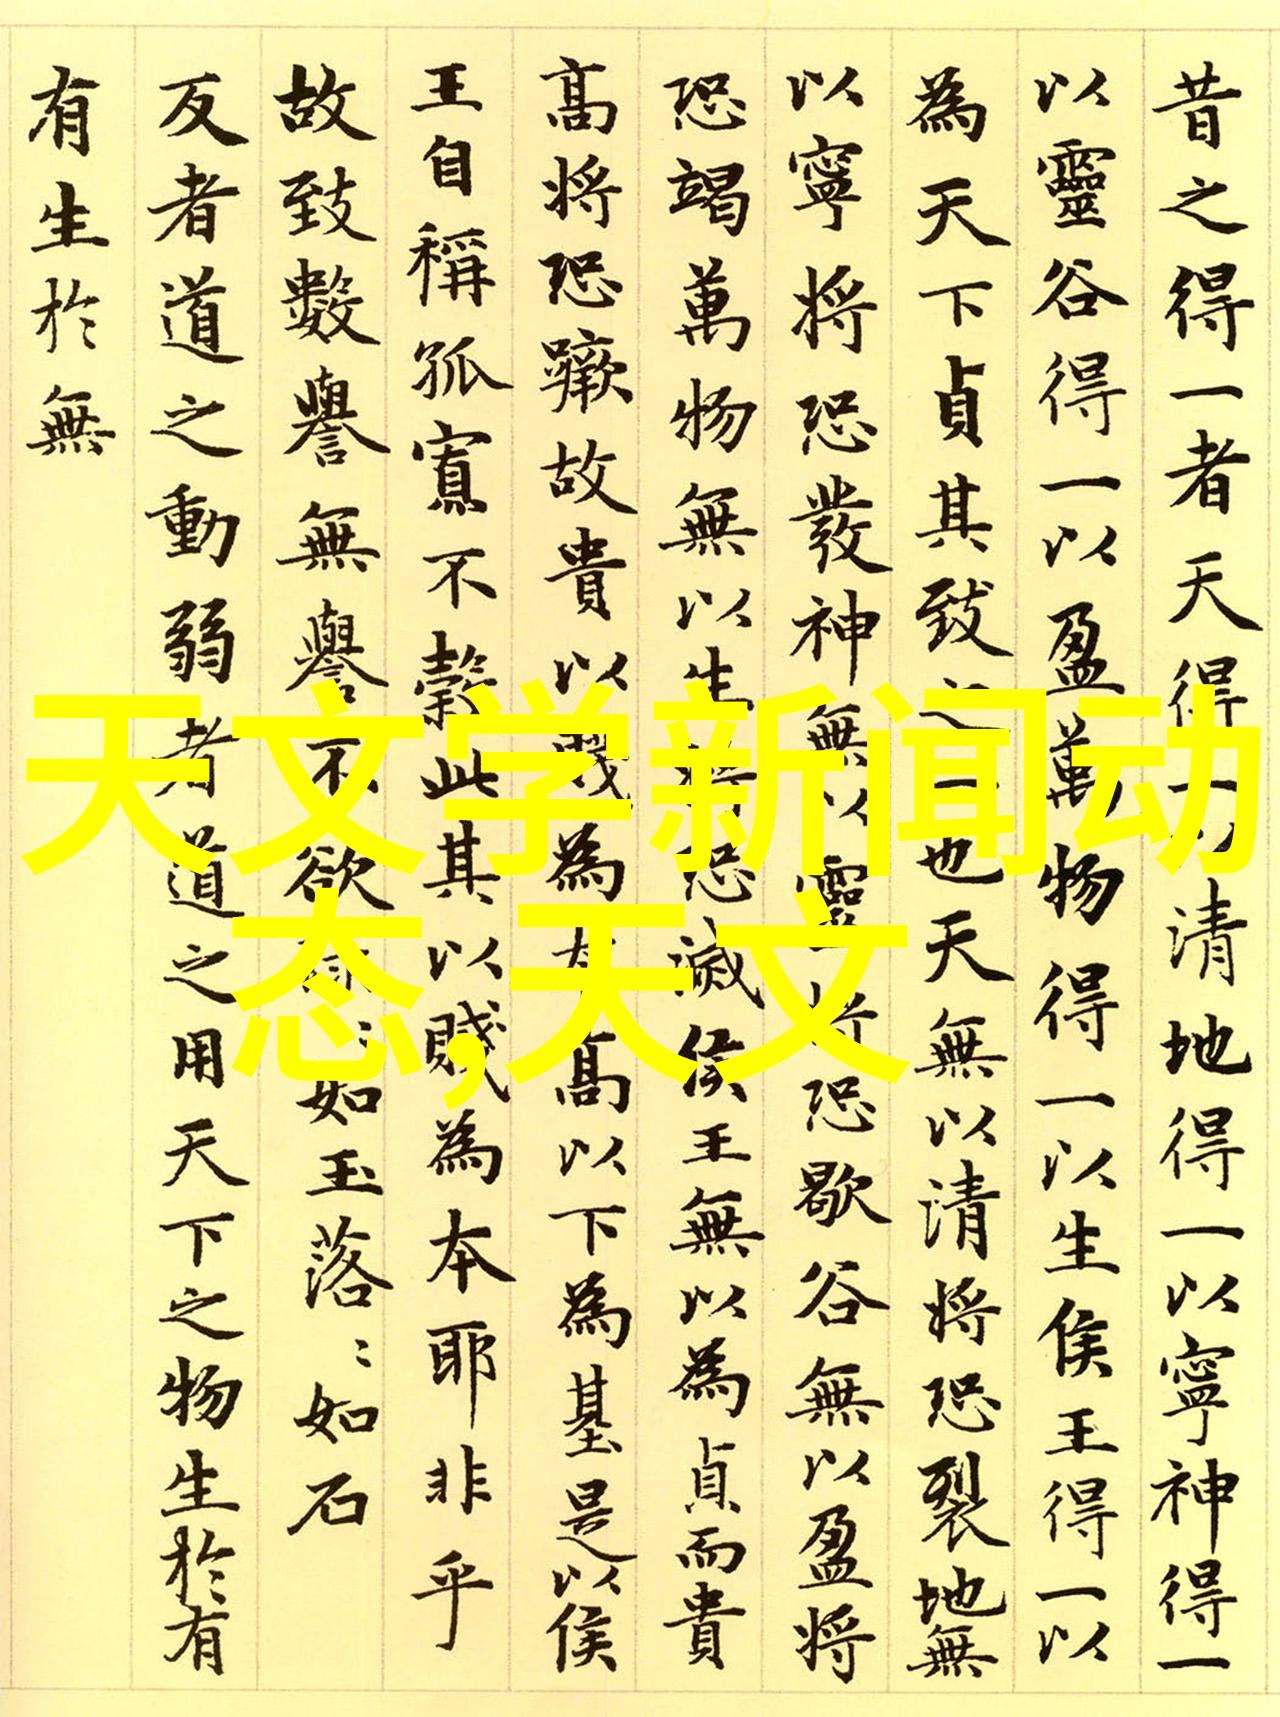 昔之得一者天得一以清地得一以寧神得一
以靈谷得一以盈萬物得一以生侯王得一以
為天下貞其致之一也天無以清将恐裂地無
以寧将恐發神無以靈将恐歇谷無以盈将
恐竭萬物無以生将恐滅侯王無以為貞而貴
高将恐蹶故貴以賤為本高以下為基是以侯
王自稱孤寡不穀此其以賤為本耶非乎
故致數譽無譽不欲〻如玉落〻如石
反者道之動弱者道之用天下之物生於有
有生於無
天文学新闻动
态,天文